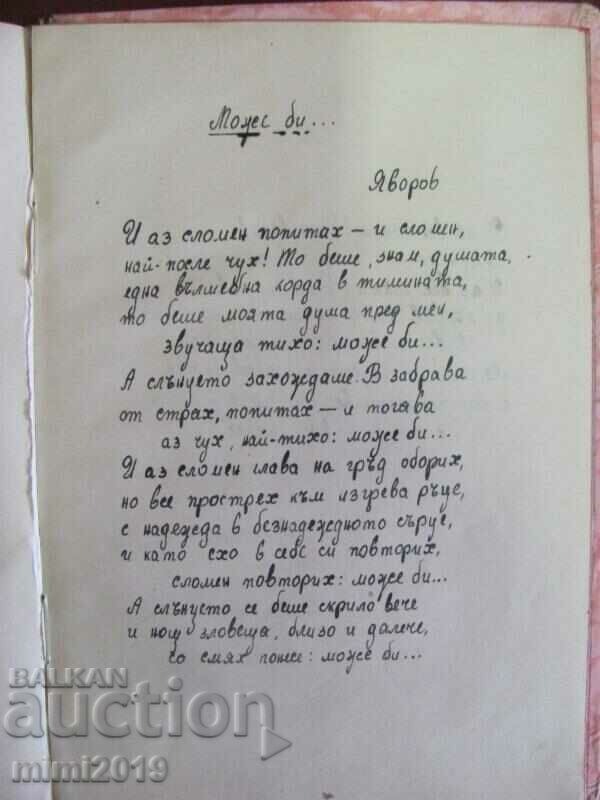 Може би...
Яворов
И аз сломен попитах – и сломен,
най-после чух! То беше, знам, душата,
една вълшебна корда в тишината,
то беше моята дума пред мен,
звучаща тихо: може би...
А слънцето захождаше. В забрава
от страх, попитах – и тогава
аз чух, най-тихо: може би...
И аз сломен глава на гръд оборих,
но все прострех към изгрева ръце,
с надежда в безнадеждното сърце,
и като ехо в себе си повторих,
сломен повторих: може би...
А слънцето се беше скрило вече
и нощ зловеща, близо и далече,
со смях поше: може би...
BALKAN
auction
mimi2019